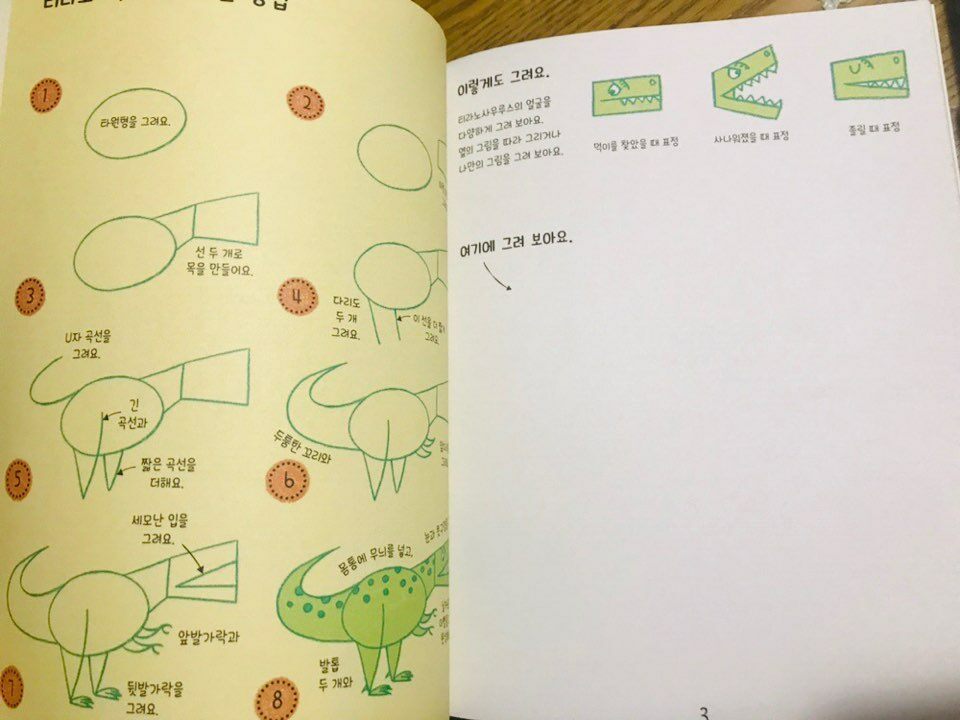 1
타원형을 그려요.
2
선 두 개로
목을 만들어요.
3
4
다리도
두 개
그려요.
이 선을 더
그려요.
U자 곡선을
그려요.
긴
곡선과
짧은 곡선을
더해요.
5
두툼한 꼬리와
6
세모난 입을
그려요.
앞발가락과
뒷발가락을
그려요.
7
몸통에 무늬를 넣고,
눈과
발톱
두 개와
8
이렇게도 그려요.
티라노사우루스의 얼굴을
다양하게 그려 보아요.
옆의 그림을 따라 그리거나
나만의 그림을 그려 보아요.
먹이를 찾았을 때 표정
사나워졌을 때 표정
졸릴 때 표정
여기에 그려 보아요.
3